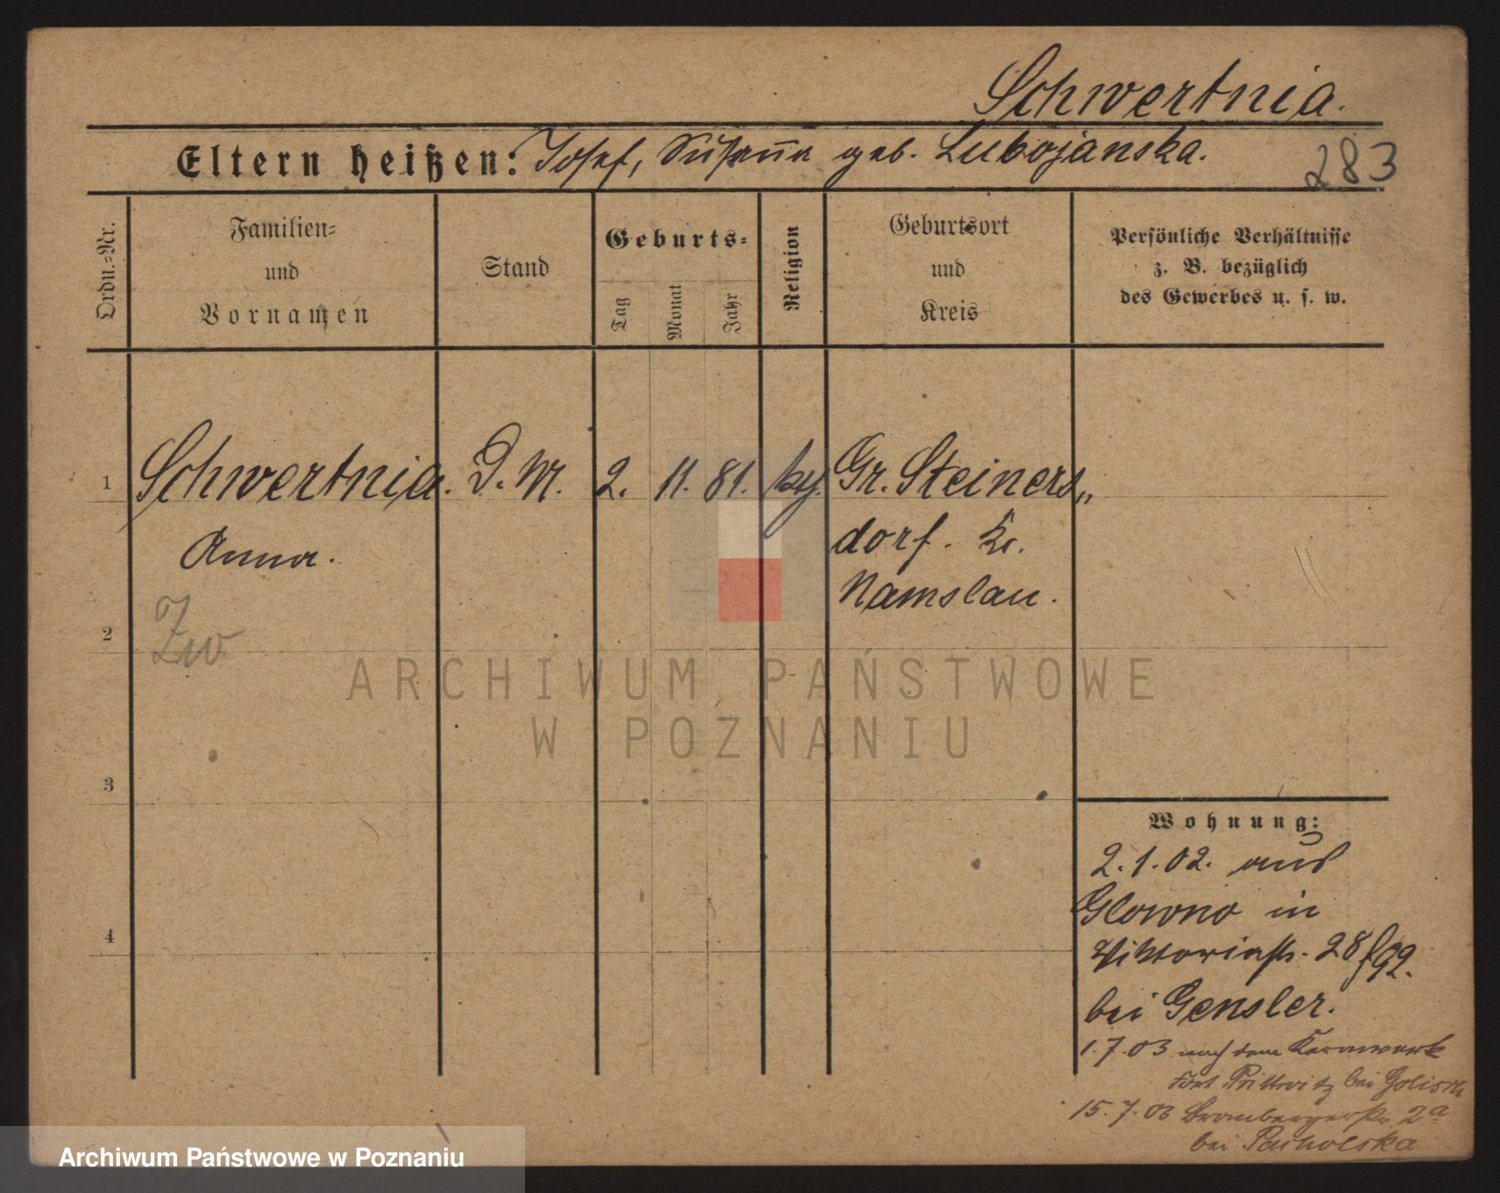 Schwertnia.
Eltern heißen: Josef, Susanna geb. Lubojanska.
283
Ordn.-Nr.
Familien-
und
Vornamen
Stand
Geburts-
Tag
Monat
Jahr
Religion
Geburtsort
und
Kreis
Persönliche Verhältnisse
z. B. bezüglich
des Gewerbes u. s. w.
1
Schwertnia. D. M. 2. 11. 81. Gr. Steiners„
Anna.
dorf. Kr.
Namslau.
2
Zw
3
4
ARCHIWUM PAŃSTWOWE
W POZNANIU
Wohnung:
2.1.02. aus
Glowno in
Viktoriastr. 28
bei Gensler.
1.7.03 nach dem Kernwerk
Fort Prittwitz bei
15.7.03 Brombergerstr. 2a
bei
Archiwum Państwowe w Poznaniu